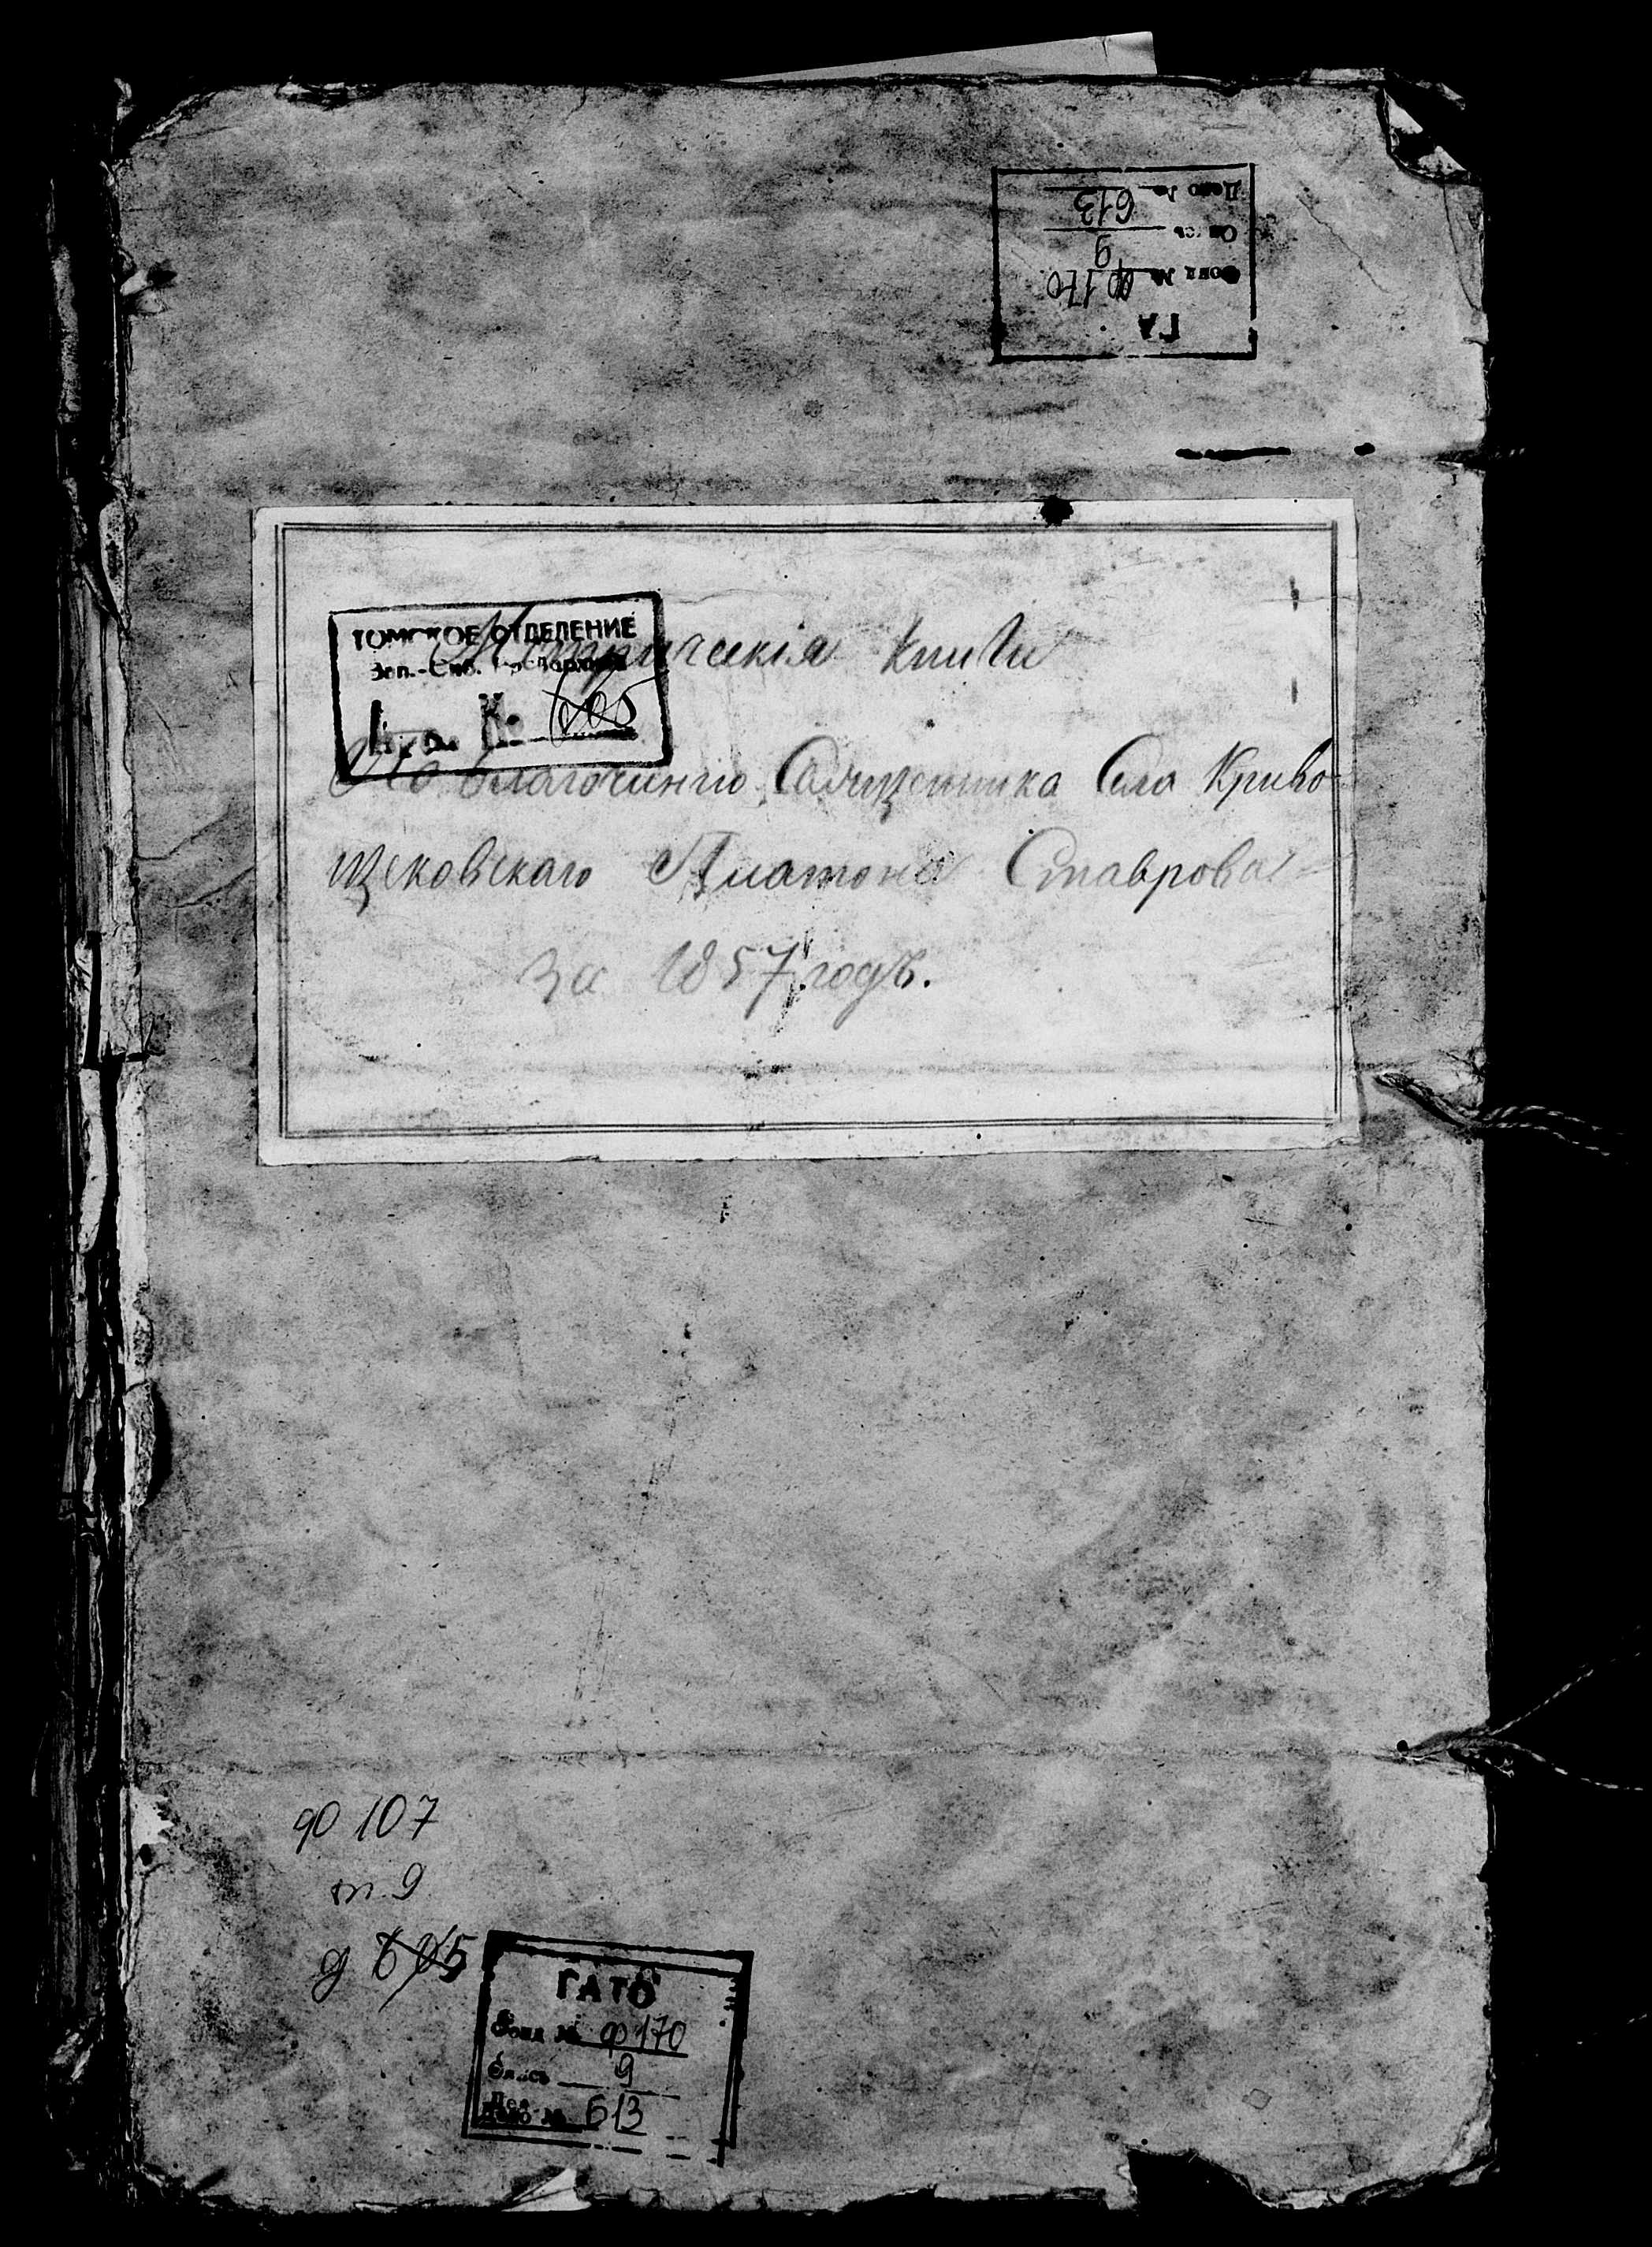 ГА
Фонд № Ф 170
Опись 9
Дело № 613
ТОМСКОЕ ОТДЕЛЕНИЕ
Зап.-Сиб.
605
Метрическія книги
благочинію Священника Села Криво-
щековскаго Платона Ставрова
за 1857 годъ.
ф 107
т. 9
д 605
ГАТО
Фонд № Ф 170
Опись 9
Дело № 613